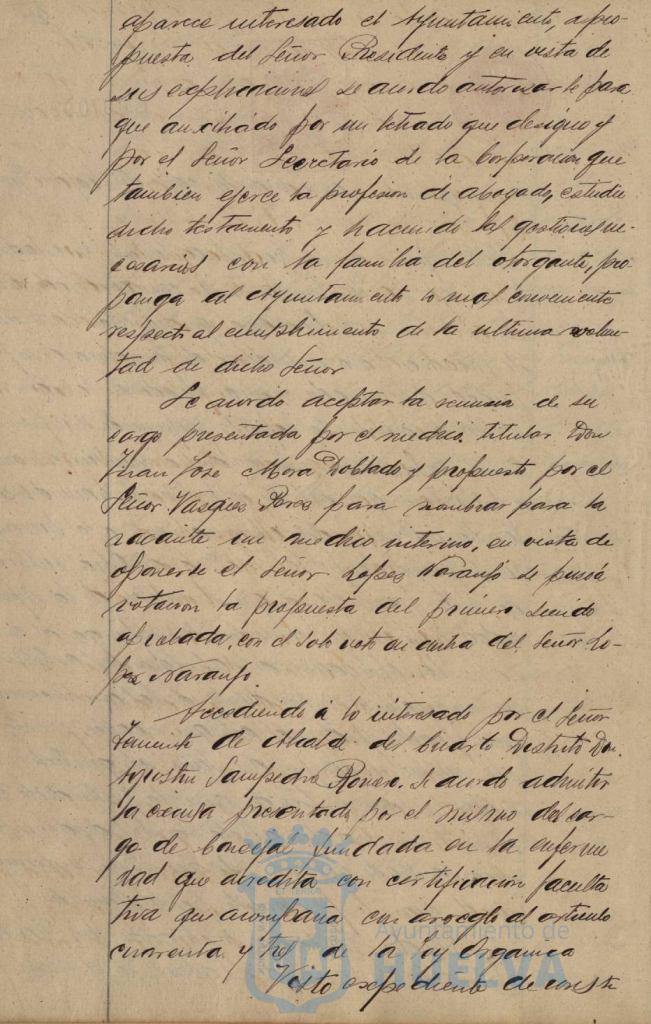 aparece interesado el Ayuntamiento, a pro-
puesta del Señor Presidente y en vista de
sus explicaciones se acordo autorizarle para
que auxiliado por un letrado que designe y
por el Señor Secretario de la Corporacion que
tambien ejerce la profesion de abogado, estudie
dicho testamento y haciendo las gestiones ne-
cesarias con la familia del otorgante, pro-
ponga al Ayuntamiento lo mas conveniente
respecto al cumplimiento de la ultima volun-
tad de dicho Señor
Se acordo aceptar la renuncia de su
cargo presentada por el medico titular Don
Juan Jose Mora Doblado y propuesto por el
Señor Vasquez Perez para nombrar para la
vacante un medico interino, en vista de
oponerse el Señor Lopez Naranjo se puso á
votacion la propuesta del primero siendo
aprobada, con el solo voto en contra del Señor Lo-
pez Naranjo.
Accediendo á lo interesado por el Señor
Teniente de Alcalde del cuarto Distrito Don
Agustin Sampedro Romero. Se acordo admitir
la excusa presentada por el mismo del car-
go de Concejal fundada en la enferme
dad que acredita con certificacion faculta
tiva que acompaña con arreglo al articulo
cuarenta y tres de la Ley Organica
Visto expediente de const
Ayuntamiento de
HUELVA